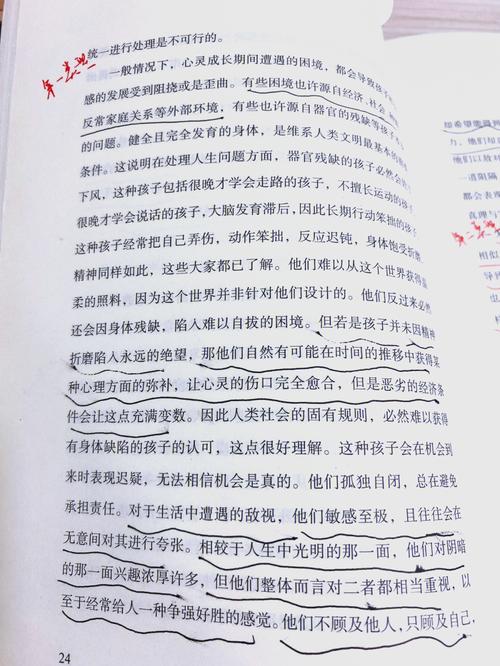 统一进行处理是不可行的。
第一类
一般情况下，心灵成长期间遭遇的困境，都会导致孩
感的发展受到阻挠或是歪曲。有些困境也许源自经济、社会
反常家庭关系等外部环境，有些也许源自器官的残缺等孩子
的问题。健全且完全发育的身体，是维系人类文明最基本的
条件。这说明在处理人生问题方面，器官残缺的孩子必然会
下风，这种孩子包括很晚才学会走路的孩子，不擅长运动的
很晚才学会说话的孩子，大脑发育滞后，因此长期行动笨拙的
这种孩子经常把自己弄伤，动作笨拙，反应迟钝，身体饱受折磨
精神同样如此，这些大家都已了解。他们难以从这个世界获得
柔的照料，因为这个世界并非针对他们设计的。他们反过来必
还会因身体残缺，陷人难以自拔的困境。但若是孩子并未因精神
折磨陷人永远的绝望，那他们自然有可能在时间的推移中获得某
种心理方面的弥补，让心灵的伤口完全愈合，但是恶劣的经济条
件会让这点充满变数。因此人类社会的固有规则，必然难以获得
有身体缺陷的孩子的认可，这点很好理解。这种孩子会在机会到
来时表现迟疑，无法相信机会是真的。他们孤独自闭，总在避免
承担责任。对于生活中遭遇的敌视，他们敏感至极，且往往会在
无意间对其进行夸张。相较于人生中光明的那一面，他们对阴暗
的那一面兴趣浓厚许多，但他们整体而言对二者都相当重视，以
至于经常给人一种争强好胜的感觉。他们不顾及他人，只顾及自己，
24
力，他们却
他们以敌对
一道阻隔
都会表现
真理与
第二类
相似
导致